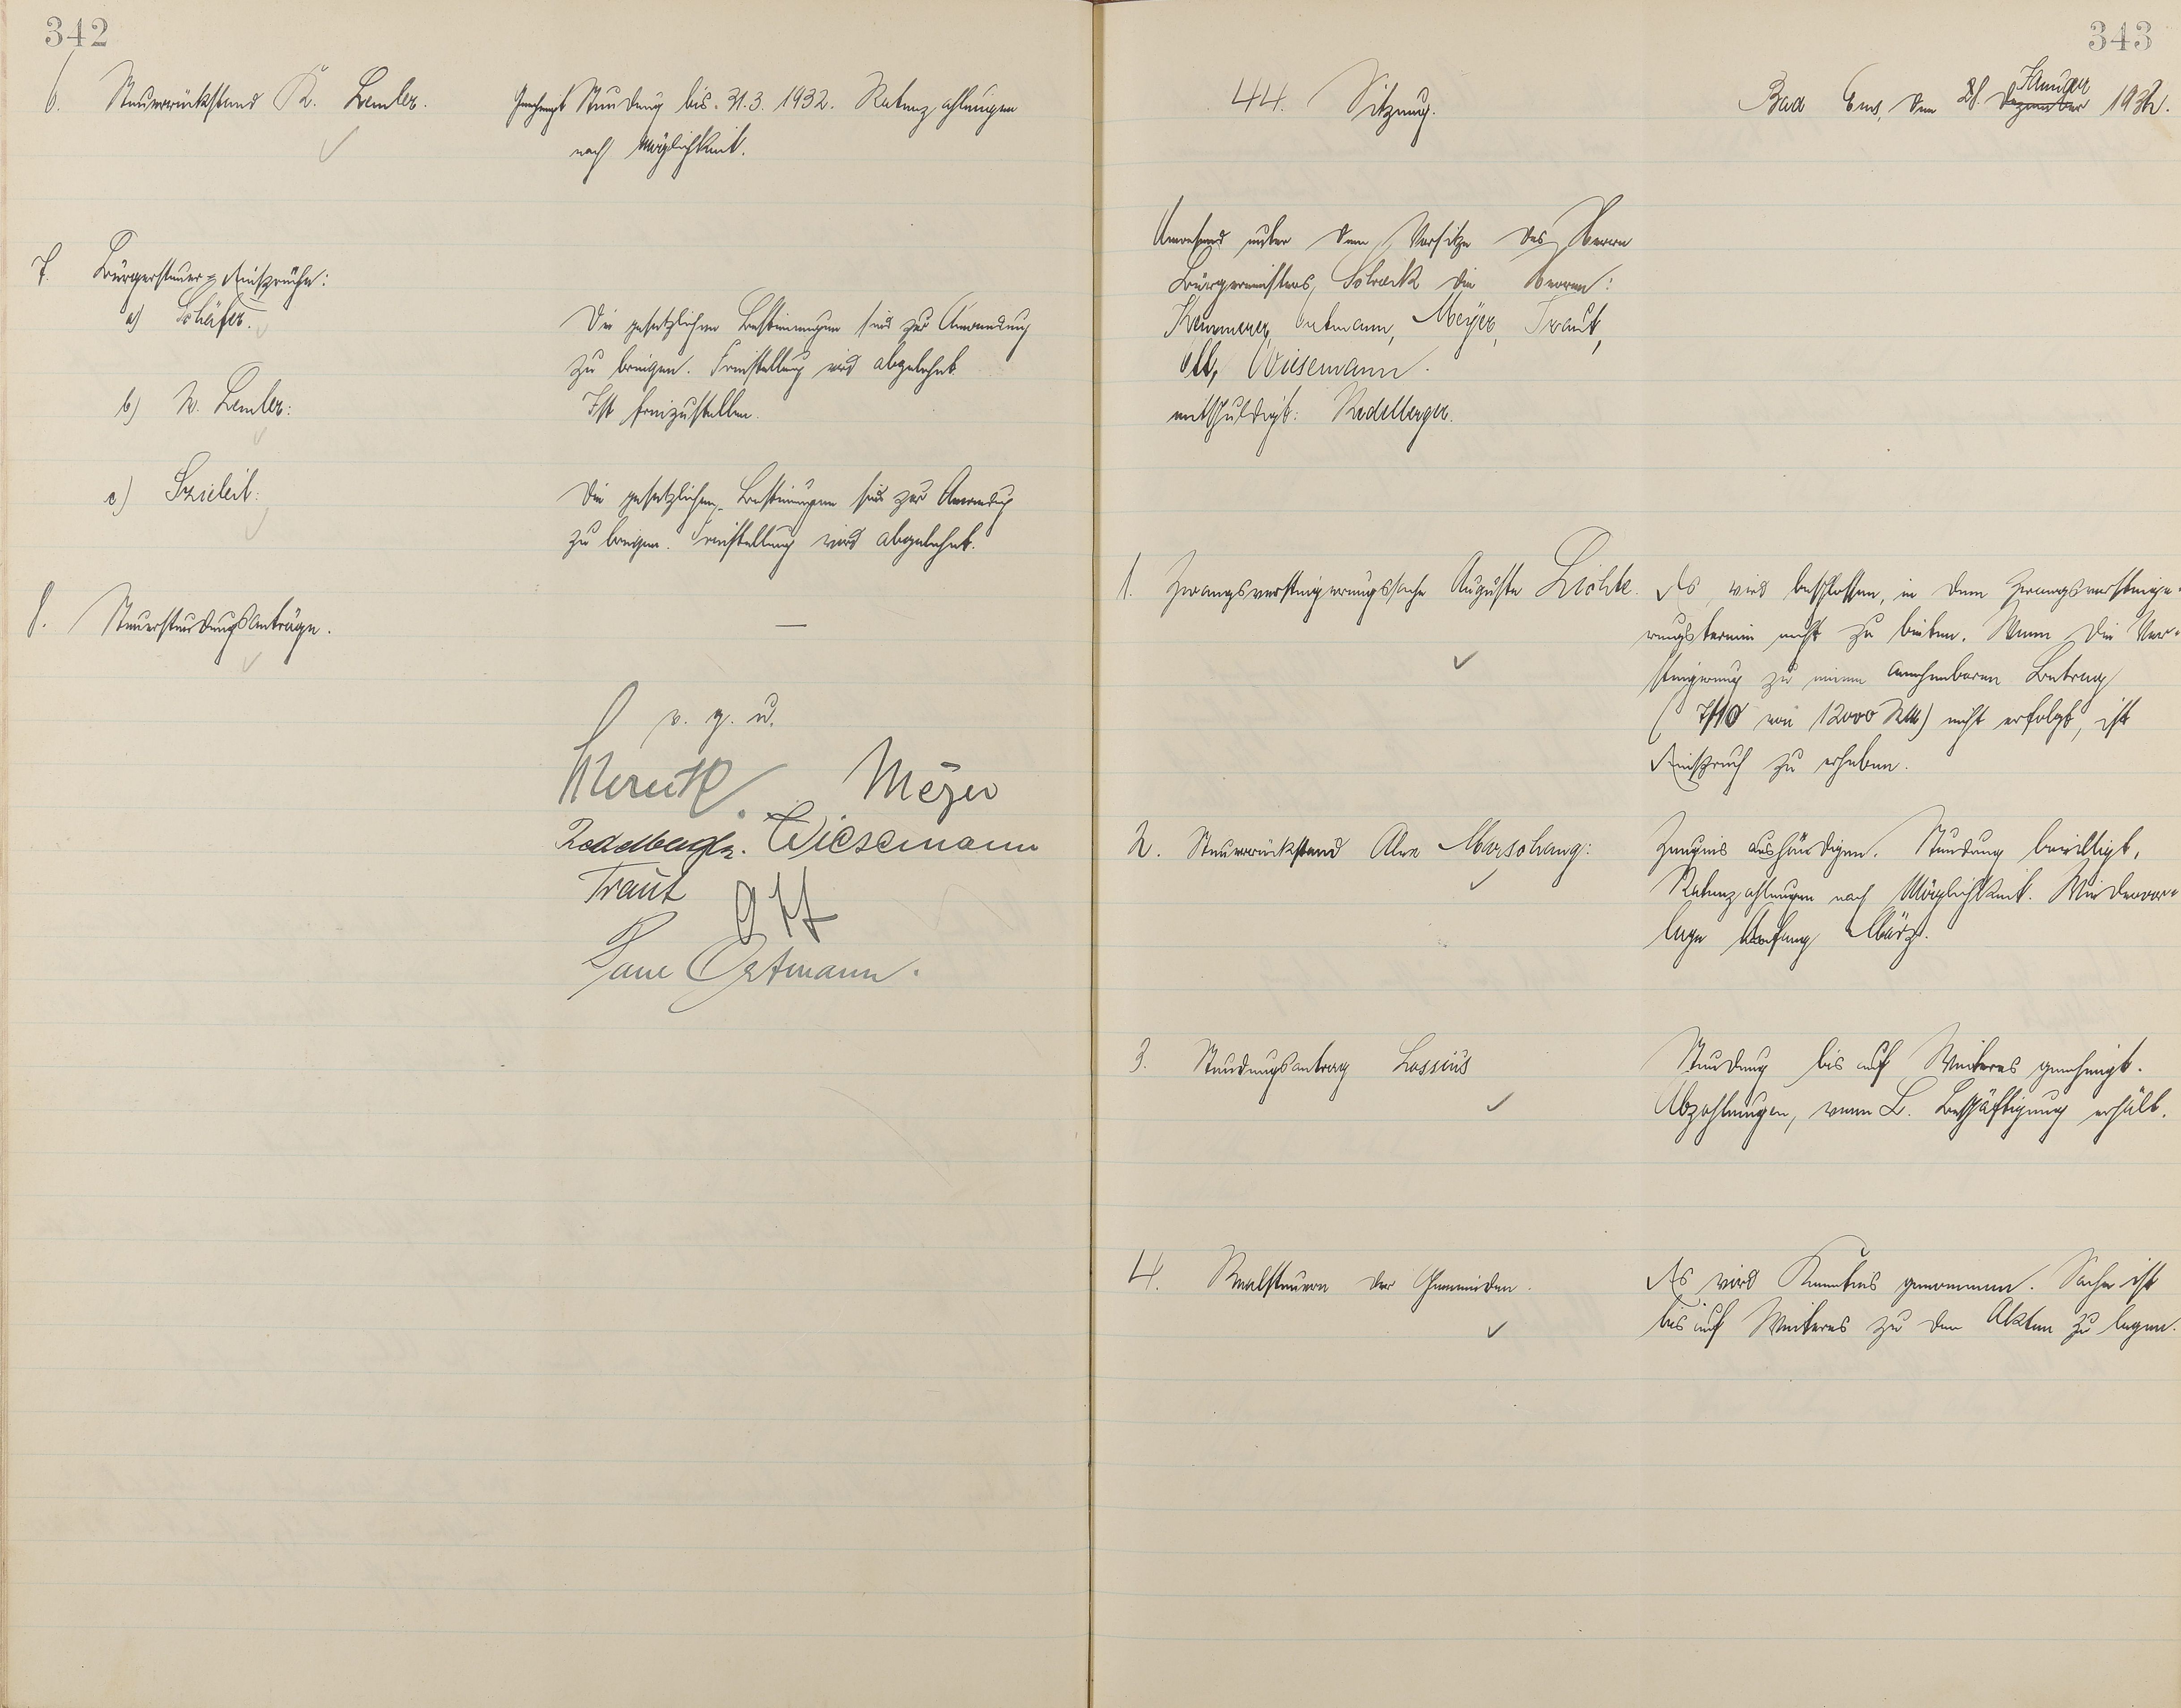 342
6. Steuerrückstand K. Lemler.
Genehmigt Stundung bis 31.3.1932. Ratenzahlungen
nach Möglichkeit.
7. Bürgersteuer-Einsprüche:
a) Schäfer.
Die gesetzlichen Bestimmungen sind zur Anwendung
zu bringen. Freistellung wird abgelehnt.
b) W. Lemler:
Ist freizustellen.
c) Szieleit:
Die gesetzlichen Bestimmungen sind zur Anwendung
zu bringen. Freistellung wird abgelehnt.
8. Steuerstundungsanträge.
—
v. g. u.
Meyer
Redelberger. Wiesemann
Traut Ott
Ortmann.
343
44. Sitzung.
Bad Ems, den 28. Dezember Januar 1932.
Anwesend unter dem Vorsitze des Herrn
Bürgermeisters Schreck die Herren:
Kemmerer, Ortmann, Meyer, Traut,
Ott, Wiesemann.
entschuldigt: Redelberger.
1. Zwangsversteigerungssache Auguste Lichte.
Es wird beschlossen, in dem Zwangsversteige-
rungstermin nicht zu bieten. Wenn die Ver-
steigerung zu einem annehmbaren Betrag
(7/10 von 12000 RM) nicht erfolgt, ist
Einspruch zu erheben.
2. Steuerrückstand Alex Marschang:
Zeugnis aushändigen. Stundung bewilligt,
Ratenzahlungen nach Möglichkeit. Wiedervor-
lage Anfang März.
3. Stundungsantrag Lossius
Stundung bis auf Weiteres genehmigt.
Abzahlungen, wenn L. Beschäftigung erhält.
4. Realsteuern der Gemeinden.
Es wird Kenntnis genommen. Sache ist
bis auf Weiteres zu den Akten zu legen.